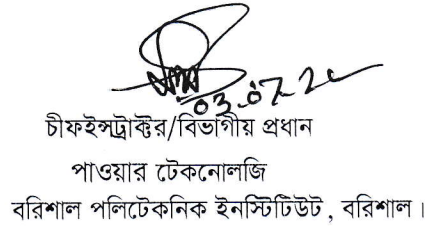 03.07.2
চীফইন্সট্রাক্টর/বিভাগীয় প্রধান
পাওয়ার টেকনোলজি
বরিশাল পলিটেকনিক ইনস্টিটিউট, বরিশাল।